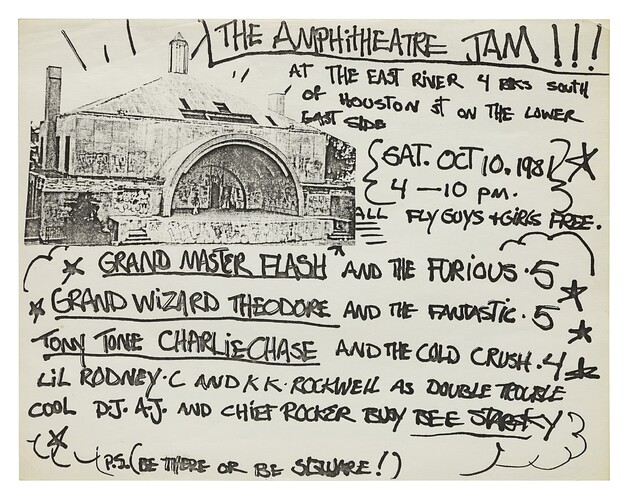 THE AMPHITHEATRE JAM!!!
AT THE EAST RIVER 4 BKS SOUTH
OF HOUSTON ST ON THE LOWER
EAST SIDE
SAT. OCT 10, 1981
4 — 10 PM.
ALL FLY GUYS + GIRLS FREE.
GRAND MASTER FLASH AND THE FURIOUS·5
GRAND WIZARD THEODORE AND THE FANTASTIC·5
TONY TONE CHARLIE CHASE AND THE COLD CRUSH·4
LIL RODNEY·C AND K.K. ROCKWELL AS DOUBLE TROUBLE
COOL D.J. A.J. AND CHIEF ROCKER BUSY BEE STARSKY
P.S. (BE THERE OR BE SQUARE!)